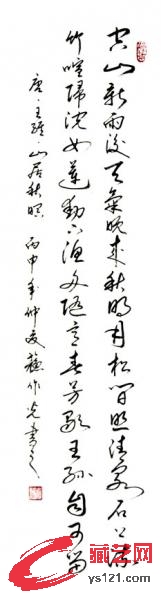 空山新雨後天氣晚來秋明月松間照清泉石上流
竹喧歸浣女蓮動下漁舟隨意春芳歇王孫自可留
唐·王維·山居秋暝 丙申年仲夏蘇作光書之
ys121.com